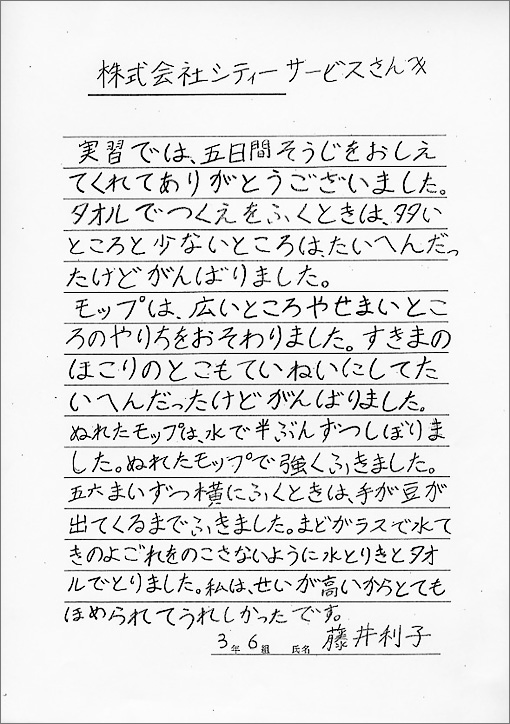 株式会社シティーサービスさんへ
実習では、五日間そうじをおしえ
てくれてありがとうございました。
タオルでつくえをふくときは、多い
ところと少ないところは、たいへんだっ
たけどがんばりました。
モップは、広いところやせまいとこ
ろのやりちをおそわりました。すきまの
ほこりのとこもていねいにしてた
いへんだったけどがんばりました。
ぬれたモップは、水で半ぶんずつしぼりま
した。ぬれたモップで強くふきました。
五六まいずつ横にふくときは、手が豆が
出てくるまでふきました。まどガラスで水て
きのよごれをのこさないように水とりきとタオ
ルでとりました。私は、せいが高いからとても
ほめられててうれしかったです。
3年6組 氏名 藤井利子